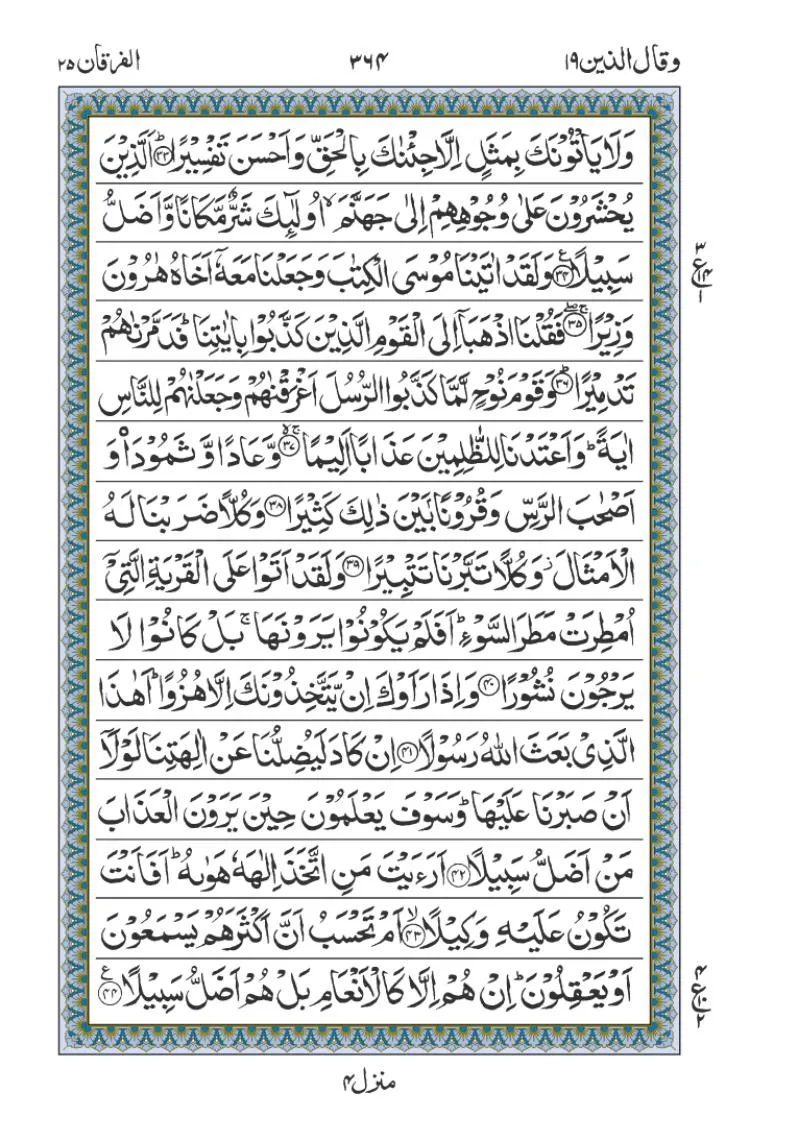 وقال الذین ۱۹
۳۶۴
الفرقان ۲۵
وَلَا یَاْتُوْنَكَ بِمَثَلٍ اِلَّا جِئْنٰكَ بِالْحَقِّ وَاَحْسَنَ تَفْسِیْرًاؕ۳۳ اَلَّذِیْنَ
یُحْشَرُوْنَ عَلٰی وُجُوْهِهِمْ اِلٰی جَهَنَّمَۙ اُولٰٓىِٕكَ شَرٌّ مَّكَانًا وَّاَضَلُّ
سَبِیْلًا۳۴ع وَلَقَدْ اٰتَیْنَا مُوْسَی الْكِتٰبَ وَجَعَلْنَا مَعَهٗۤ اَخَاهُ هٰرُوْنَ
وَزِیْرًا۳۵ۚۖ فَقُلْنَا اذْهَبَاۤ اِلَی الْقَوْمِ الَّذِیْنَ كَذَّبُوْا بِاٰیٰتِنَاؕ فَدَمَّرْنٰهُمْ
تَدْمِیْرًاؕ۳۶ وَقَوْمَ نُوْحٍ لَّمَّا كَذَّبُوا الرُّسُلَ اَغْرَقْنٰهُمْ وَجَعَلْنٰهُمْ لِلنَّاسِ
اٰیَةًؕ وَاَعْتَدْنَا لِلظّٰلِمِیْنَ عَذَابًا اَلِیْمًا۳۷ۚۖ وَّعَادًا وَّثَمُوْدَا۠ وَ
اَصْحٰبَ الرَّسِّ وَقُرُوْنًۢا بَیْنَ ذٰلِكَ كَثِیْرًا۳۸ وَكُلًّا ضَرَبْنَا لَهُ
الْاَمْثَالَؗ وَكُلًّا تَبَّرْنَا تَتْبِیْرًا۳۹ وَلَقَدْ اَتَوْا عَلَی الْقَرْیَةِ الَّتِیْۤ
اُمْطِرَتْ مَطَرَ السَّوْءِؕ اَفَلَمْ یَكُوْنُوْا یَرَوْنَهَاۚ بَلْ كَانُوْا لَا
یَرْجُوْنَ نُشُوْرًا۴۰ وَاِذَا رَاَوْكَ اِنْ یَّتَّخِذُوْنَكَ اِلَّا هُزُوًاؕ اَهٰذَا
الَّذِیْ بَعَثَ اللّٰهُ رَسُوْلًا۴۱ اِنْ كَادَ لَیُضِلُّنَا عَنْ اٰلِهَتِنَا لَوْلَاۤ
اَنْ صَبَرْنَا عَلَیْهَاؕ وَسَوْفَ یَعْلَمُوْنَ حِیْنَ یَرَوْنَ الْعَذَابَ
مَنْ اَضَلُّ سَبِیْلًا۴۲ اَرَءَیْتَ مَنِ اتَّخَذَ اِلٰهَهٗ هَوٰىهُؕ اَفَاَنْتَ
تَكُوْنُ عَلَیْهِ وَكِیْلًاۙ۴۳ اَمْ تَحْسَبُ اَنَّ اَكْثَرَهُمْ یَسْمَعُوْنَ
اَوْ یَعْقِلُوْنَؕ اِنْ هُمْ اِلَّا كَالْاَنْعَامِ بَلْ هُمْ اَضَلُّ سَبِیْلًا۴۴ع
۳
ع۱۴
۱
۴
ع۱۰
۲
منزل ۴